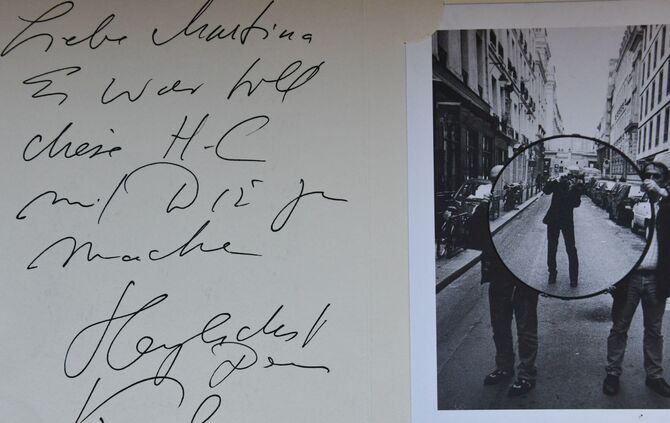 Liebe Martina
Es war toll
diese H-C
mit Dir zu
machen
Herzlichst
Dein